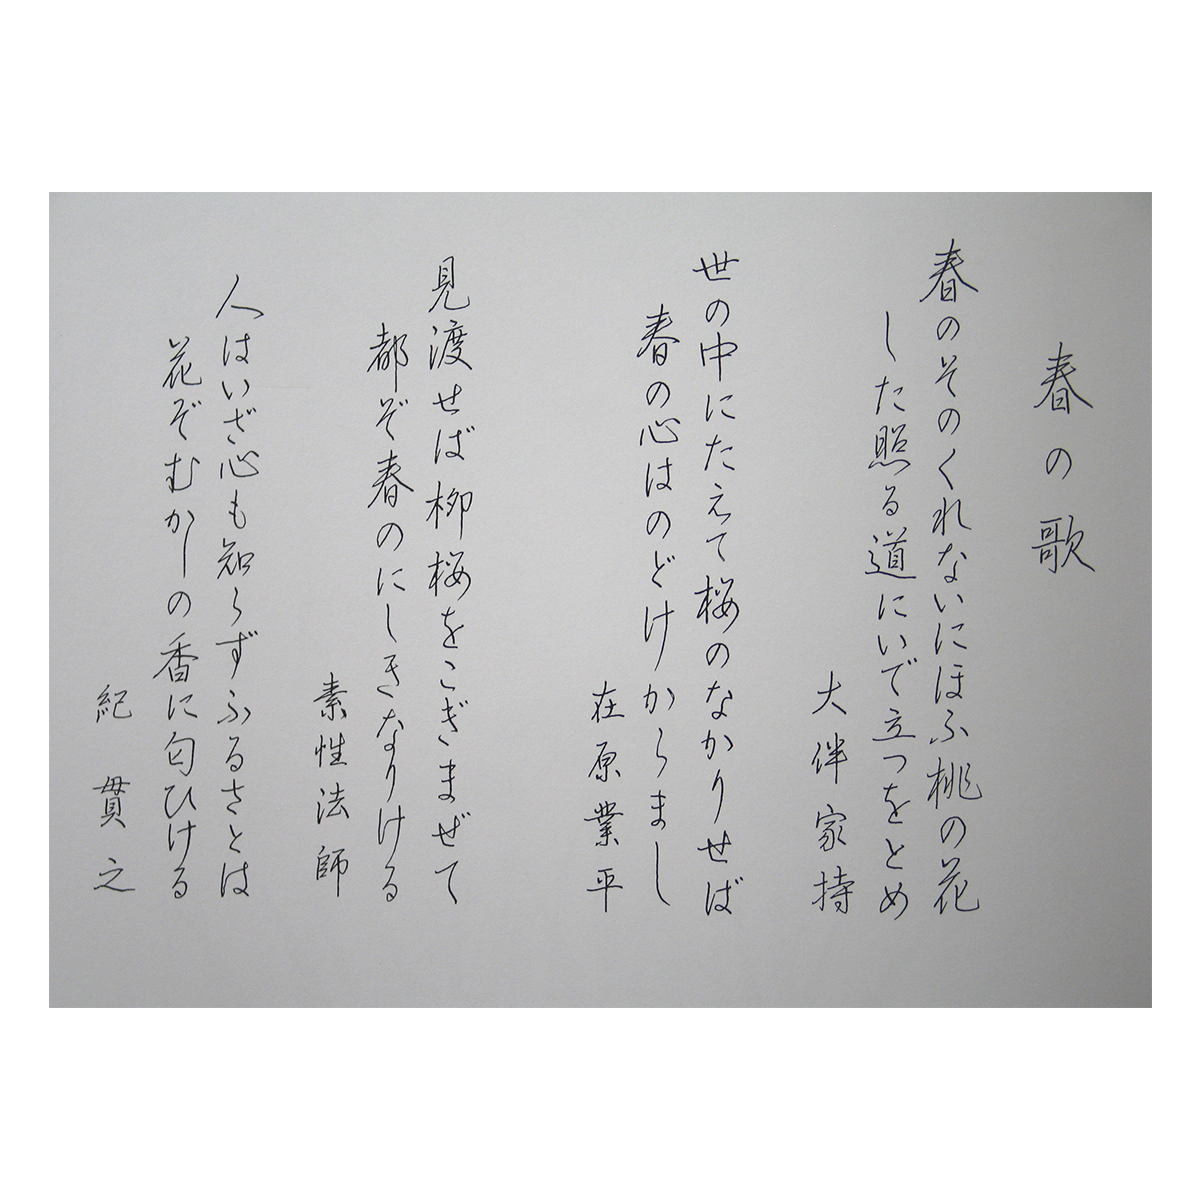 春の歌
春のそのくれないにほふ桃の花
した照る道にいで立つをとめ
大伴家持
世の中にたえて桜のなかりせば
春の心はのどけからまし
在原業平
見渡せば柳桜をこぎまぜて
都ぞ春のにしきなりける
素性法師
人はいざ心も知らずふるさとは
花ぞむかしの香に匂ひける
紀貫之